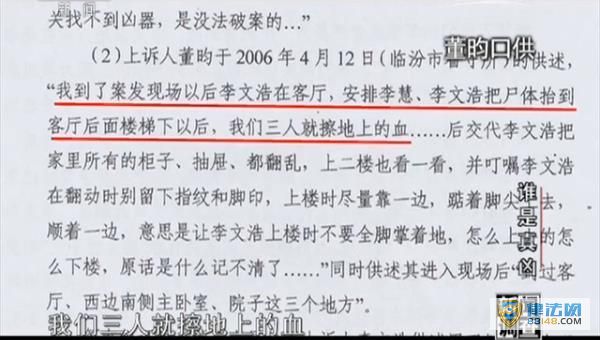 新闻
关找不到凶器，是没法破案的…”
董昀口供
(2) 上诉人董昀于 2006 年 4 月 12 日(临汾市看守所)的供述，
“我到了案发现场以后李文浩在客厅，安排李慧、李文浩把尸体抬到
客厅后面楼梯下以后，我们三人就擦地上的血……后交代李文浩把
家里所有的柜子、抽屉、都翻乱，上二楼也看一看，并叮嘱李文浩
在翻动时别留下指纹和脚印，上楼时尽量靠一边，踮着脚尖上去，
顺着一边，意思是让李文浩上楼时不要全脚掌着地，怎么上去的怎
么下楼，原话是什么记不清了……”同时供述其进入现场后“经过客
厅、西边南侧主卧室、院子这三个地方”。
谁是真凶
我们三人就擦地上的血
律法网
33148.com